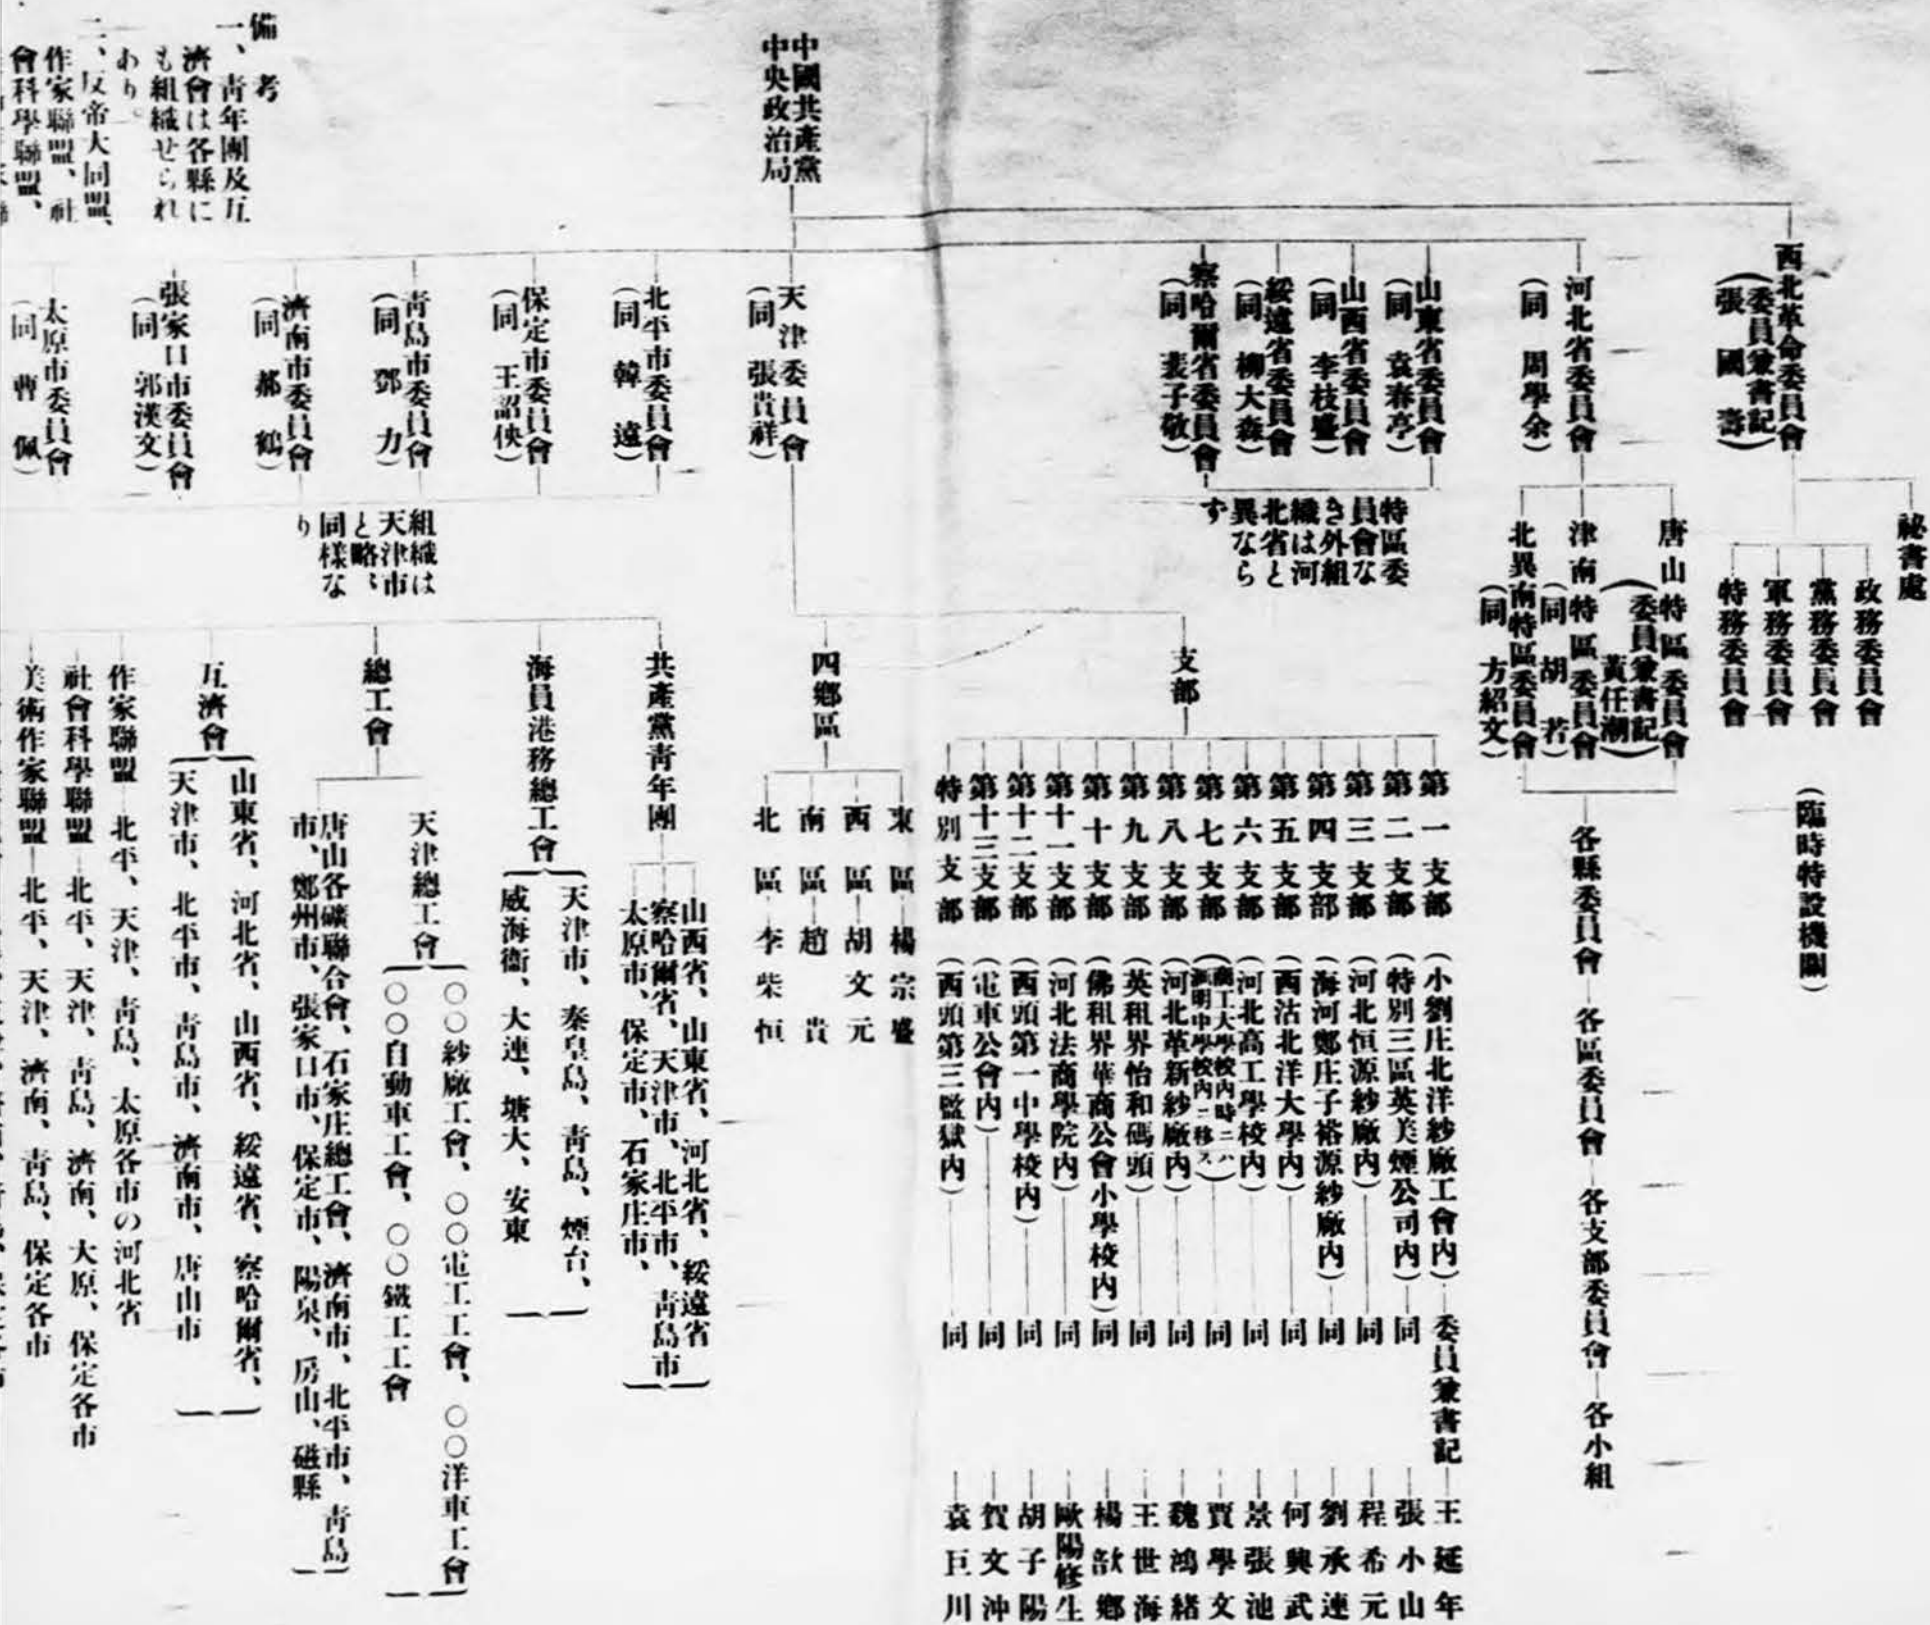 中國共產黨
中央政治局
西北革命委員會
(委員兼書記)
(張國燾)
祕書處
政務委員會
黨務委員會
軍務委員會
特務委員會
(臨時特設機關)
河北省委員會
(同 周學余)
唐山特區委員會
(委員兼書記
黃任潮)
津南特區委員會
(同 胡若)
北異南特區委員會
(同 方紹文)
各縣委員會—各區委員會—各支部委員會—各小組
山東省委員會
(同 袁春亭)
山西省委員會
(同 李枝盛)
綏遠省委員會
(同 柳大森)
察哈爾省委員會
(同 裴子敬)
特區委
員會な
き外組
織は河
北省と
異なら
ず
天津委員會
(同 張貴祥)
支部
第一支部(小劉庄北洋紗廠工會內)—委員兼書記—王延年
第二支部(特別三區英美煙公司內)—同—張小山
第三支部(河北恒源紗廠內)—同—程希元
第四支部(海河鄭庄子裕源紗廠內)—同—劉承連
第五支部(西沽北洋大學內)—同—何興武
第六支部(河北高工學校內)—同—景張池
第七支部(商工大學校內時ニハ
明中學校內ニ移ス)—同—賈學文
第八支部(河北革新紗廠內)—同—魏鴻緒
第九支部(英租界怡和碼頭)—同—王世海
第十支部(佛租界華商公會小學校內)—同—楊歆鄉
第十一支部(河北法商學院內)—同—歐陽修生
第十二支部(西頭第一中學校內)—同—胡子陽
第十三支部(電車公會內)—同—賀文沖
特別支部(西頭第三監獄內)—同—袁巨川
四鄉區
東區—楊宗盛
西區—胡文元
南區—趙貴
北區—李柴恒
北平市委員會
(同 韓遠)
保定市委員會
(同 王詔俠)
青島市委員會
(同 鄧力)
濟南市委員會
(同 郝鶴)
張家口市委員會
(同 郭漢文)
太原市委員會
(同 曹佩)
組織は
天津市
と略〻
同樣な
り
共產黨青年團
山西省、山東省、河北省、綏遠省
察哈爾省、天津市、北平市、青島市
太原市、保定市、石家庄市、
海員港務總工會
天津市、秦皇島、青島、煙台、
威海衞、大連、塘大、安東
總工會
天津總工會
〇〇紗廠工會、〇〇電工工會、〇〇洋車工會
〇〇自動車工會、〇〇鐵工工會
唐山各礦聯合會、石家庄總工會、濟南市、北平市、青島
市、鄭州市、張家口市、保定市、陽泉、房山、磁縣
互濟會
山東省、河北省、山西省、綏遠省、察哈爾省、
天津市、北平市、青島市、濟南市、唐山市
作家聯盟—北平、天津、青島、太原各市の河北省
社會科學聯盟—北平、天津、青島、濟南、大原、保定各市
美術作家聯盟—北平、天津、濟南、青島、保定各市
備考
一、青年團及互
濟會は各縣に
も組織せられ
あり。
二、反帝大同盟、
作家聯盟、社
會科學聯盟、